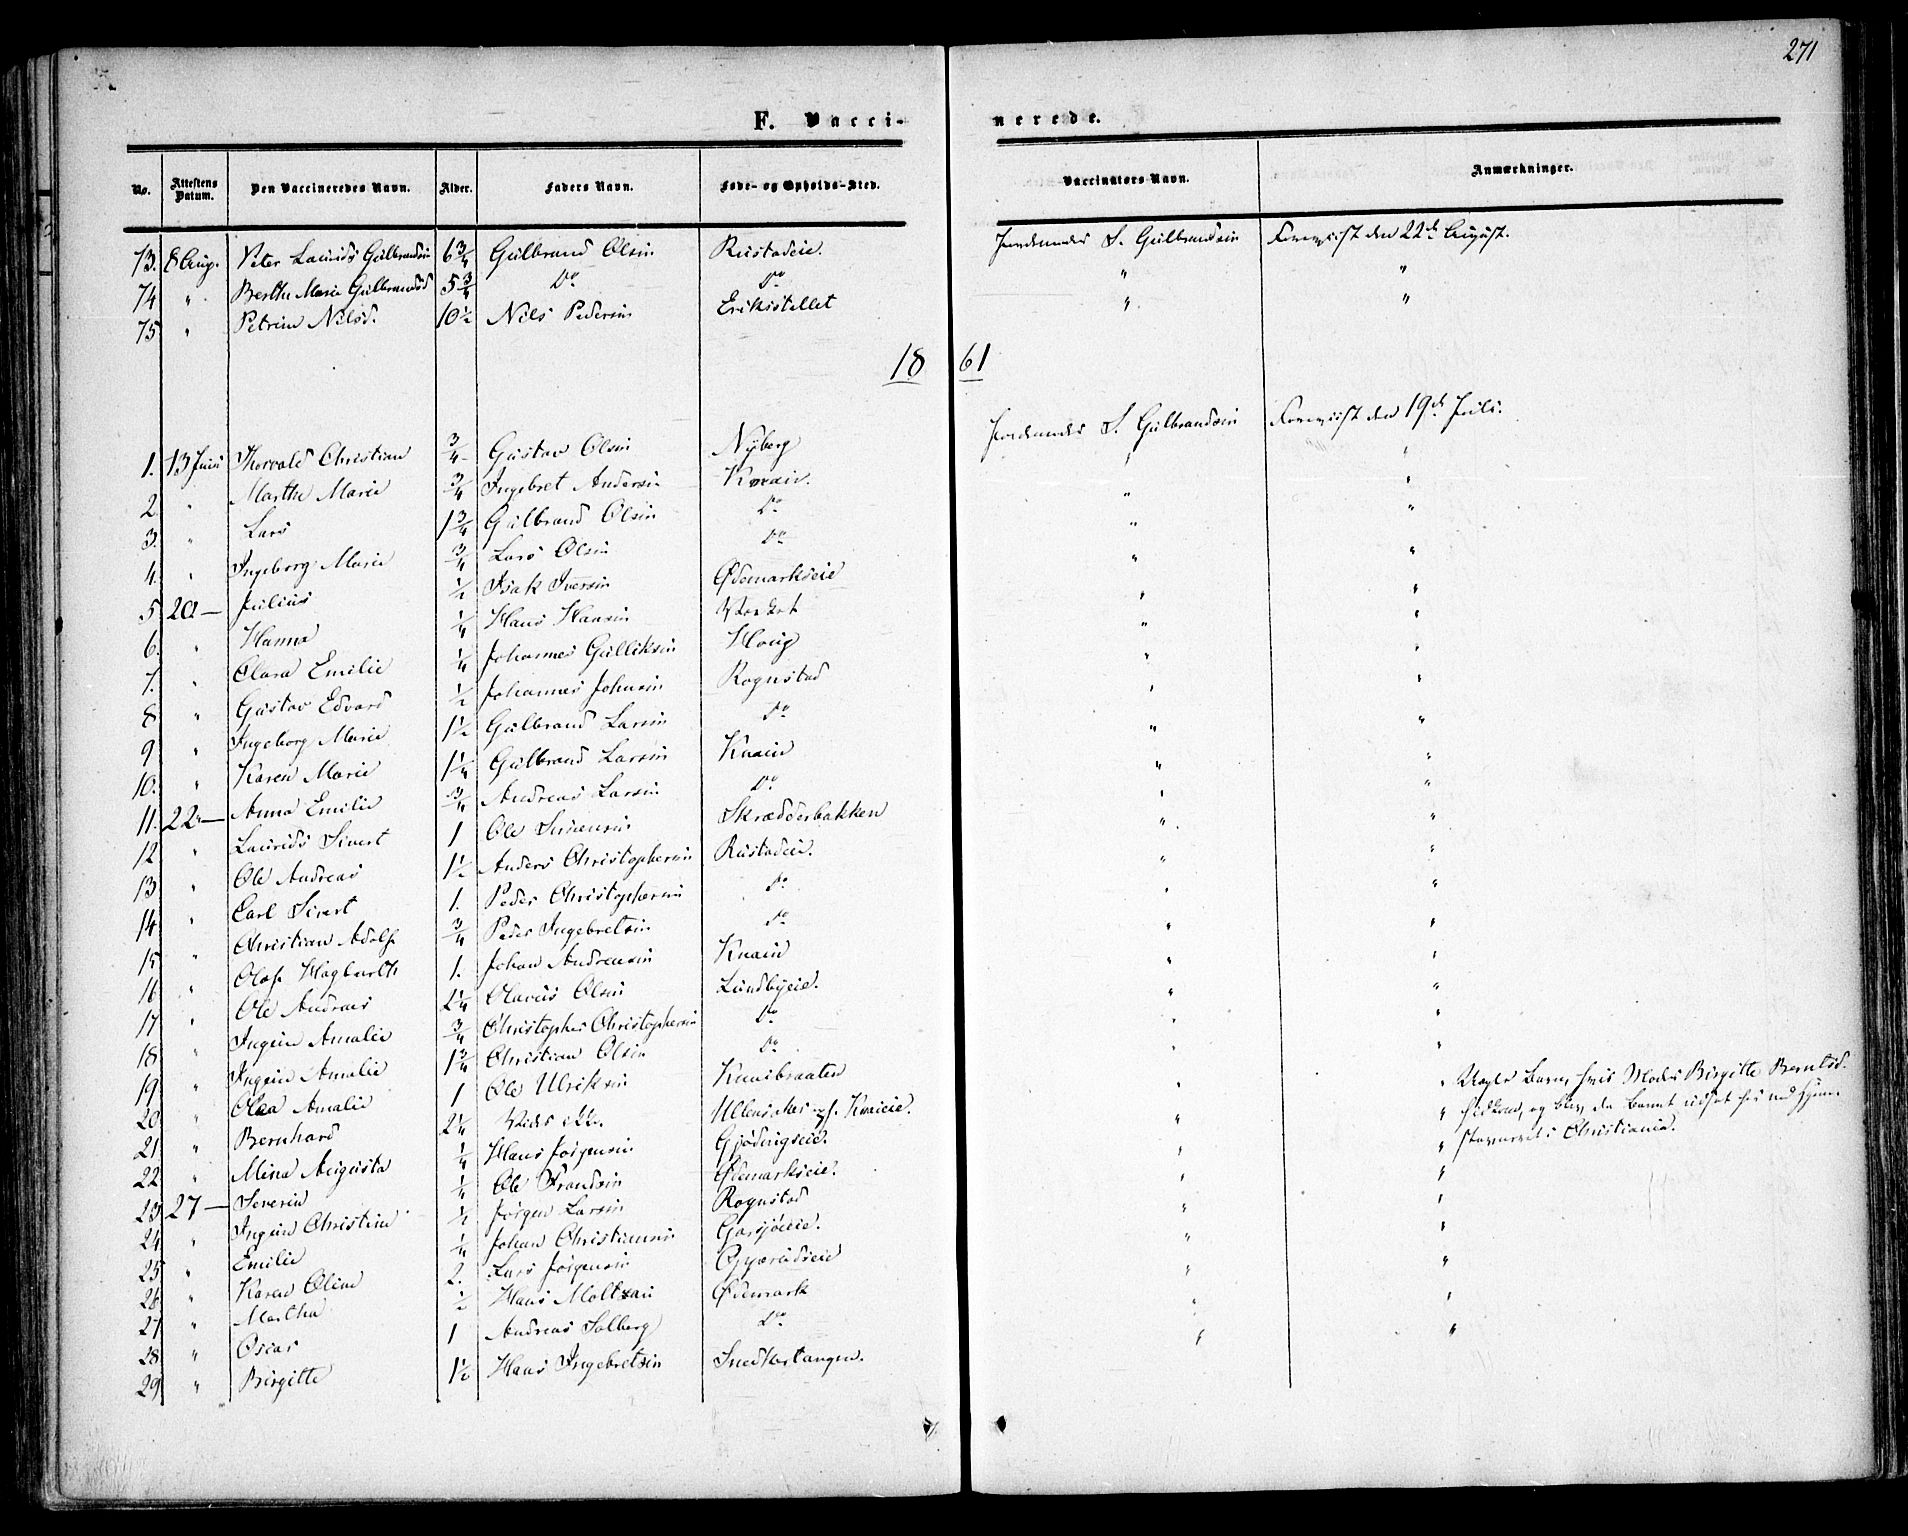 271
F. Vaccinerede.
No. | Attestens Datum. | Den Vaccineredes Navn. | Alder. | Faders Navn. | Føde- og Opholds-Sted. | Vaccinators Navn. | Anmærkninger.
73. | 8 Aug. | Peter Laurids Gulbrandsen | 6 3/4 | Gulbrand Olsen | Rustadeie. | S. Gulbrandsen | Foreviist den 22de August.
74 | " | Berthe Marie Gulbrandsd | 5 3/4 | Do | Do | " | "
75 | " | Petrine Nilsd. | 10 1/2 | Nils Pedersen | Eriksstellet | " | "
1861
1. | 13 Juni | Thorvald Christian | 3/4 | Gustav Olsen | Nyberg | S. Gulbrandsen | Foreviist den 19de Juli.
2. | " | Marthe Marie | 3/4 | Ingebret Andersen | Knaie. | " | "
3. | " | Lars | 1 3/4 | Gulbrand Olsen | Do | " | "
4. | " | Ingeborg Marie | 3/4 | Lars Olsen | Do | " | "
5 | 20 — | Julius | 1/2 | Isak Iversen | Ødemarkseie | " | "
6. | " | Hanna | 1/4 | Hans Hansen | | " | "
7. | " | Clara Emilie | 1/4 | Johannes Gulliksen | Houg | " | "
8 | " | Gustav Edvard | 1/2 | Johannes Johnsen | Rognstad | " | "
9 | " | Ingeborg Marie | 1 1/2 | Gulbrand Larsen | Do | " | "
10. | " | Karen Marie | 1 1/4 | Gulbrand Larsen | Knaie | " | "
11. | 22 — | Anna Emilie | 3/4 | Andreas Larsen | Do | " | "
12 | " | Laurids Sivert | 1 | Ole Simensen | Skrædderbakken | " | "
13 | " | Ole Andreas | 1 1/2 | Anders Christophersen | Rustadeie. | " | "
14 | " | Carl Sivert | 1. | Peder Christophersen | Do | " | "
15 | " | Christian Adolf | 3/4 | Peder Ingebretsen | Do | " | "
16 | " | Olaf Hagbarth | 1. | Johan Andreasen | Knaie | " | "
17 | " | Ole Andreas | 2 1/4 | Olavus Olsen | Lundbyeie. | " | "
18 | " | Ingein Amalie | 3/4 | Christopher Christophersen | Do | " | "
19 | " | Ingein Amalie | 1 3/4 | Christian Olsen | Do | " | "
20 | " | Olea Amalie | 1 | Ole Ulriksen | Knaibraaten | " | " Barn, hvis Moder Birgitte Berntsd.
21 | " | Bernhard | 2 1/4 | | Ullensaker Knaieie. | " | " og blev da Barnet udsat
22 | " | Mina Augusta | 1/4 | Hans Jörgensen | Gjødingseie. | " | " i Christiania.
23 | 27 — | Severin | 1/4 | Ole Frandsen | Ødemarkseie. | " | "
24 | " | Ingein Christine | 1/2 | Jörgen Larsen | Rognstad | " | "
25 | " | Emilie | 1/4 | Johan Christiansen | Garsjöeie. | " | "
26 | " | Karen Oline | 2. | Lars Jörgensen | | " | "
27 | " | Martha | 1/2 | Hans Moltzau | Ødemark | " | "
28 | " | Oscar | 1 | Andreas Solberg | Do | " | "
29 | " | Birgitte | 1 1/2 | Hans Ingebretsen | Snedkertangen.